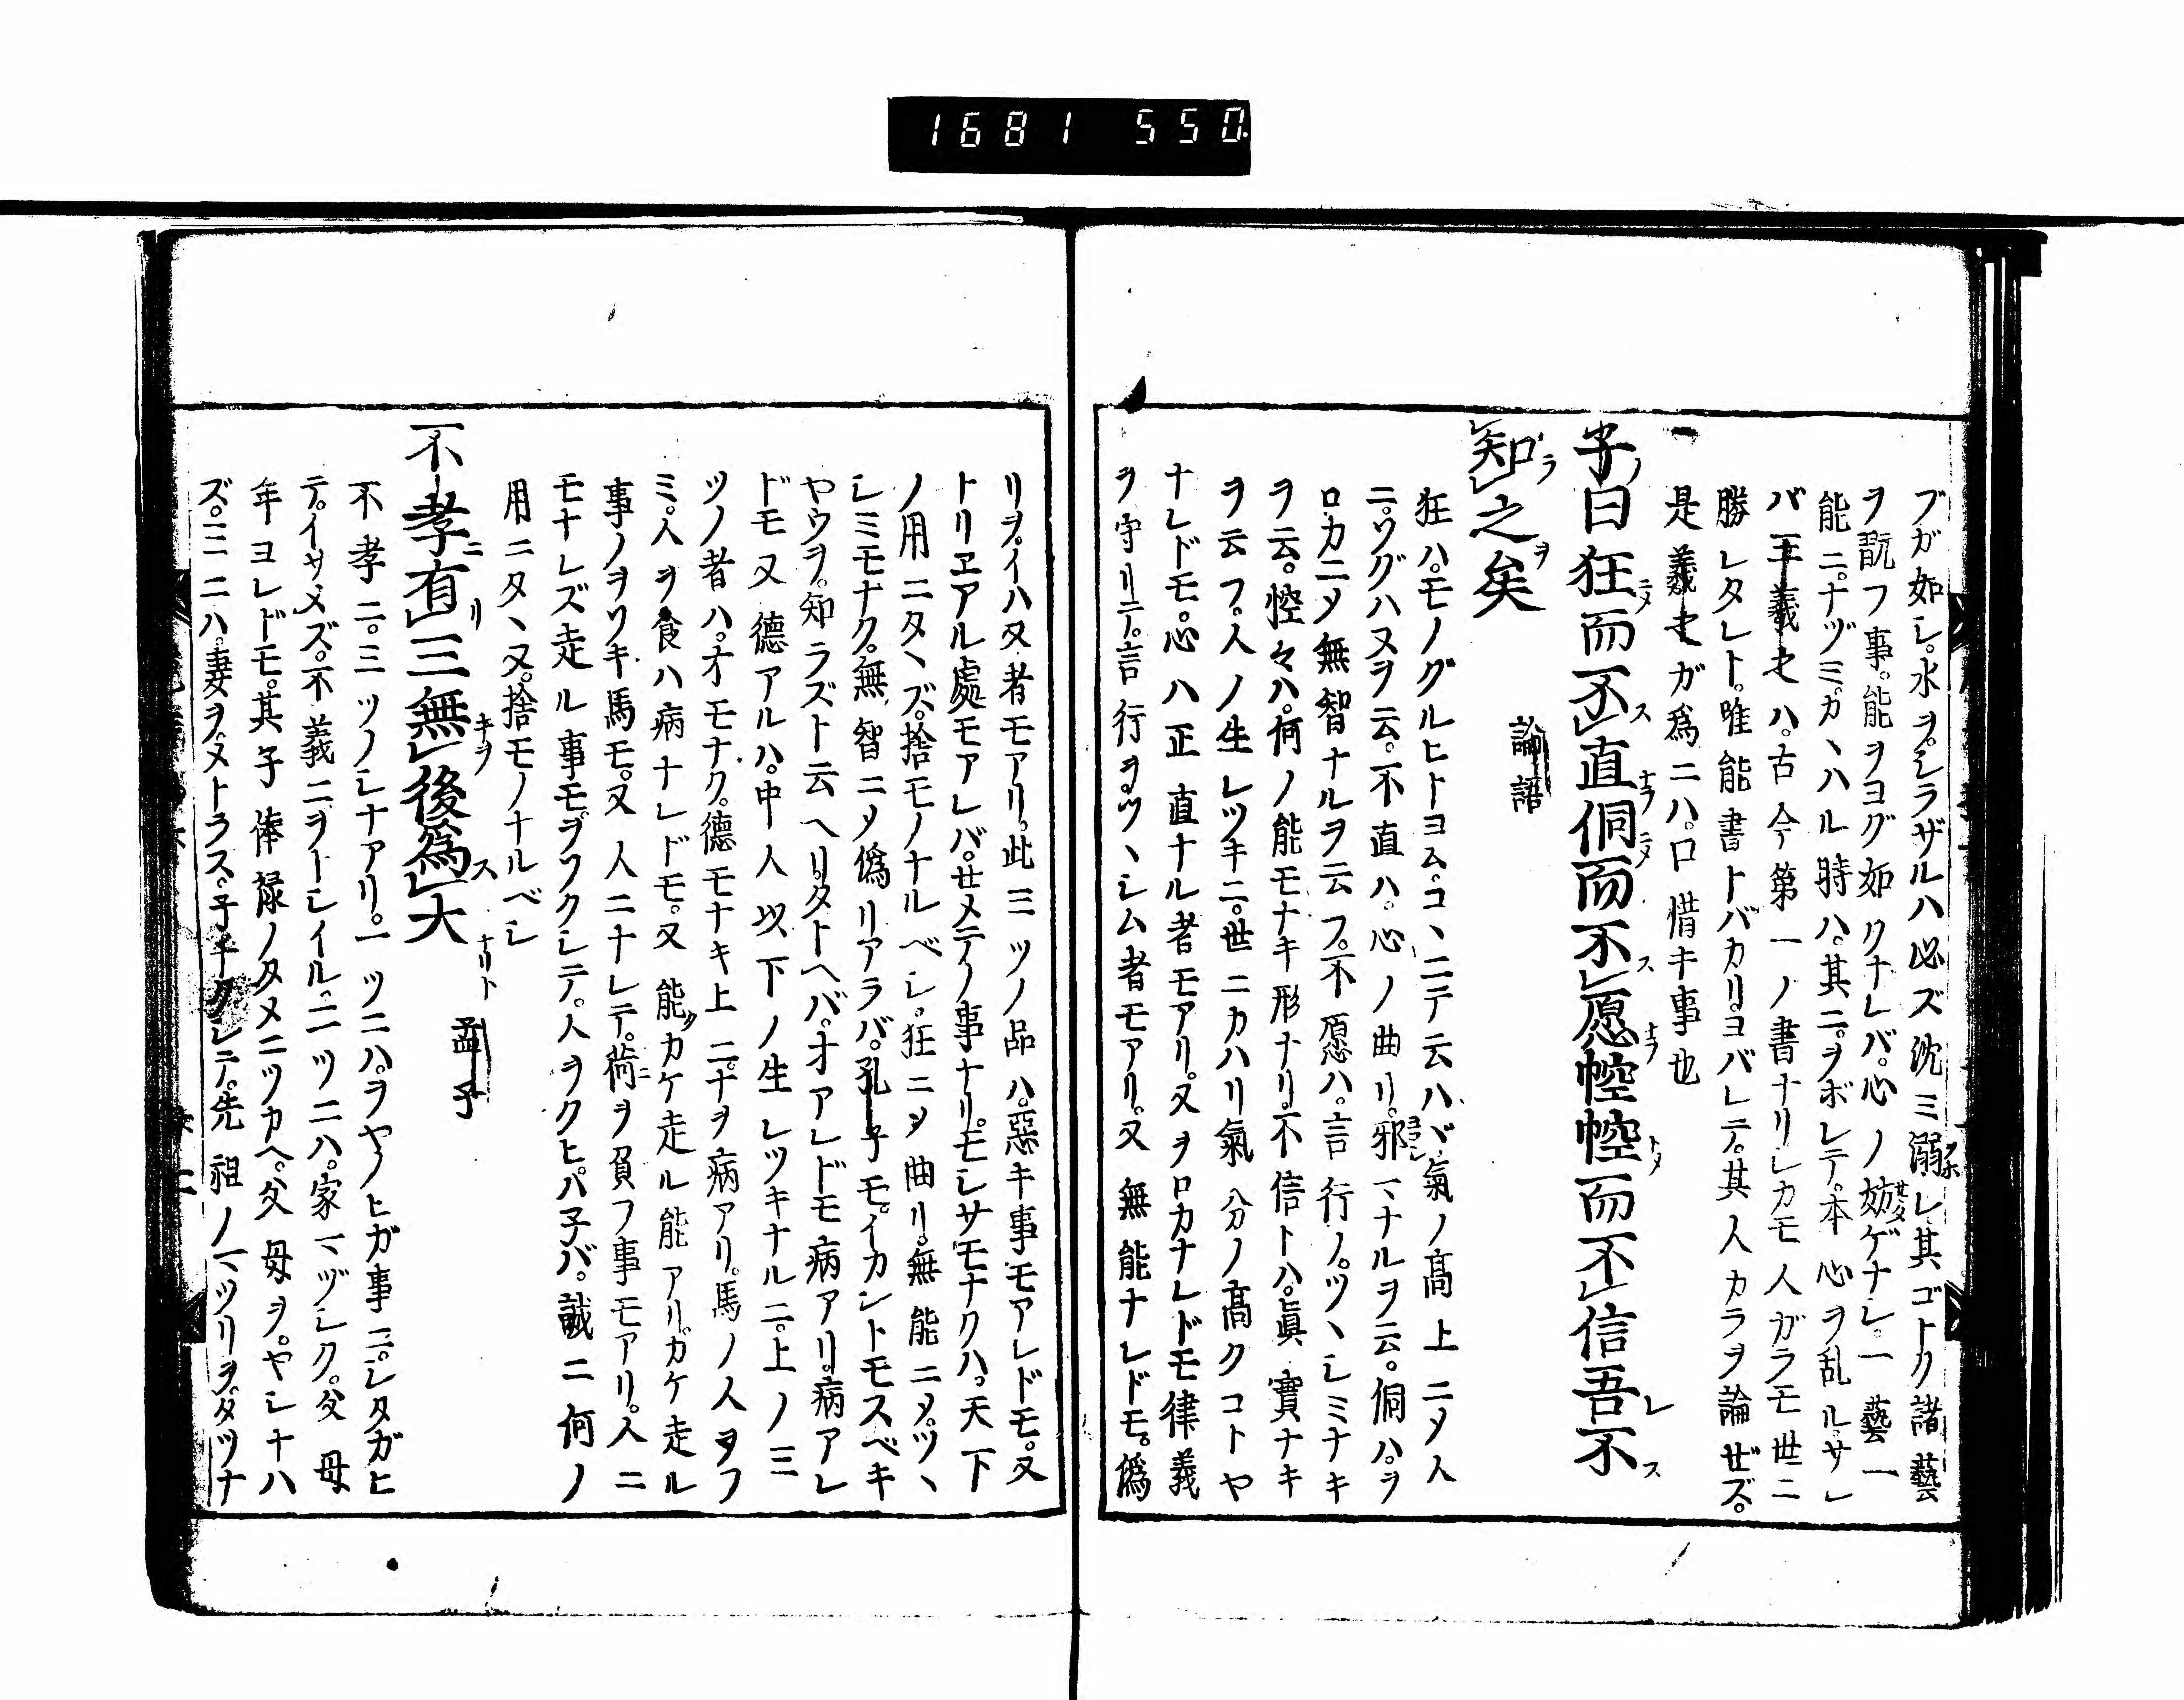 1681 550
ブガ如シ。水ヲ。シラザルハ必ズ沈ミ溺レ其ゴトク諸藝
ヲ翫フ事。能ヲヨグ如クナレバ。心ノ妨ゲナシ。一藝一
能ニ。ナヅミ。カヽハル時ハ。其ニ。ヲボレテ。本心ヲ乱ル。サレ
バ王羲之ハ。古今第一ノ書ナリシカモ人ガラモ世ニ
勝レタレト。唯能書トバカリ。ヨバレテ。其人カラヲ論ゼズ。
是羲之ガ為ニハ。口惜キ事也
子曰狂而不直侗而不愿悾悾而不信吾不
知之矣 論語
狂ハ。モノグルヒトヨム。コヽニテ云ハヾ氣ノ髙上ニメ人
ニ。ツグハヌヲ云。不直ハ。心ノ曲リ。邪マナルヲ云。侗ハ。ヲ
ロカニメ無智ナルヲ云フ。不愿ハ。言行ノ。ツヽシミナキ
ヲ云。悾々ハ。何ノ能モナキ形ナリ。不信トハ。眞實ナキ
ヲ云フ。人ノ生レツキニ。世ニカハリ氣分ノ髙クコトヤ
ナレドモ。心ハ正直ナル者モアリ。又ヲロカナレドモ律義
ヲ守リテ。言行ヲ。ツヽシム者モアリ。又無能ナレドモ。偽
リヲ。イハヌ者モアリ。此三ツノ品ハ。惡キ事モアレドモ。又
トリヱアル處モアレバ。せメテノ事ナリ。モシサモナクハ。天下
ノ用ニタヽズ。捨モノナルベシ。狂ニメ曲リ。無能ニメ。ツヽ
シミモナク。無智ニメ偽リアラバ。孔子モ。イカントモスベキ
ヤウヲ。知ラズト云ヘリ。タトヘバ。才アレドモ病アリ。病アレ
ドモ又德アルハ。中人以下ノ生レツキナルニ。上ノ三
ツノ者ハ。才モナク。德モナキ上ニ。ナヲ病アリ。馬ノ人ヲフ
ミ。人ヲ食ハ病ナレドモ。又能カケ走ル能アリ。カケ走ル
事ノヲソキ馬モ。又人ニナレテ。荷ヲ負フ事モアリ。人ニ
モナレズ走ル事モ。ヲソクシテ。人ヲクヒバ子バ。誠ニ何ノ
用ニタヽヌ。捨モノナルベシ
不孝有三無後為大 孟子
不孝ニ。三ツノシナアリ。一ツニハ。ヲヤノヒガ事ニ。シタガヒ
テ。イサメズ。不義ニヲトシイル。二ツニハ。家マヅシク。父母
年ヨレドモ。其子俸禄ノタメニツカヘ。父母ヲ。ヤシナハ
ズ。三ニハ。妻ヲ。メトラス。子ナクシテ。先祖ノマツリヲ。ダツナ